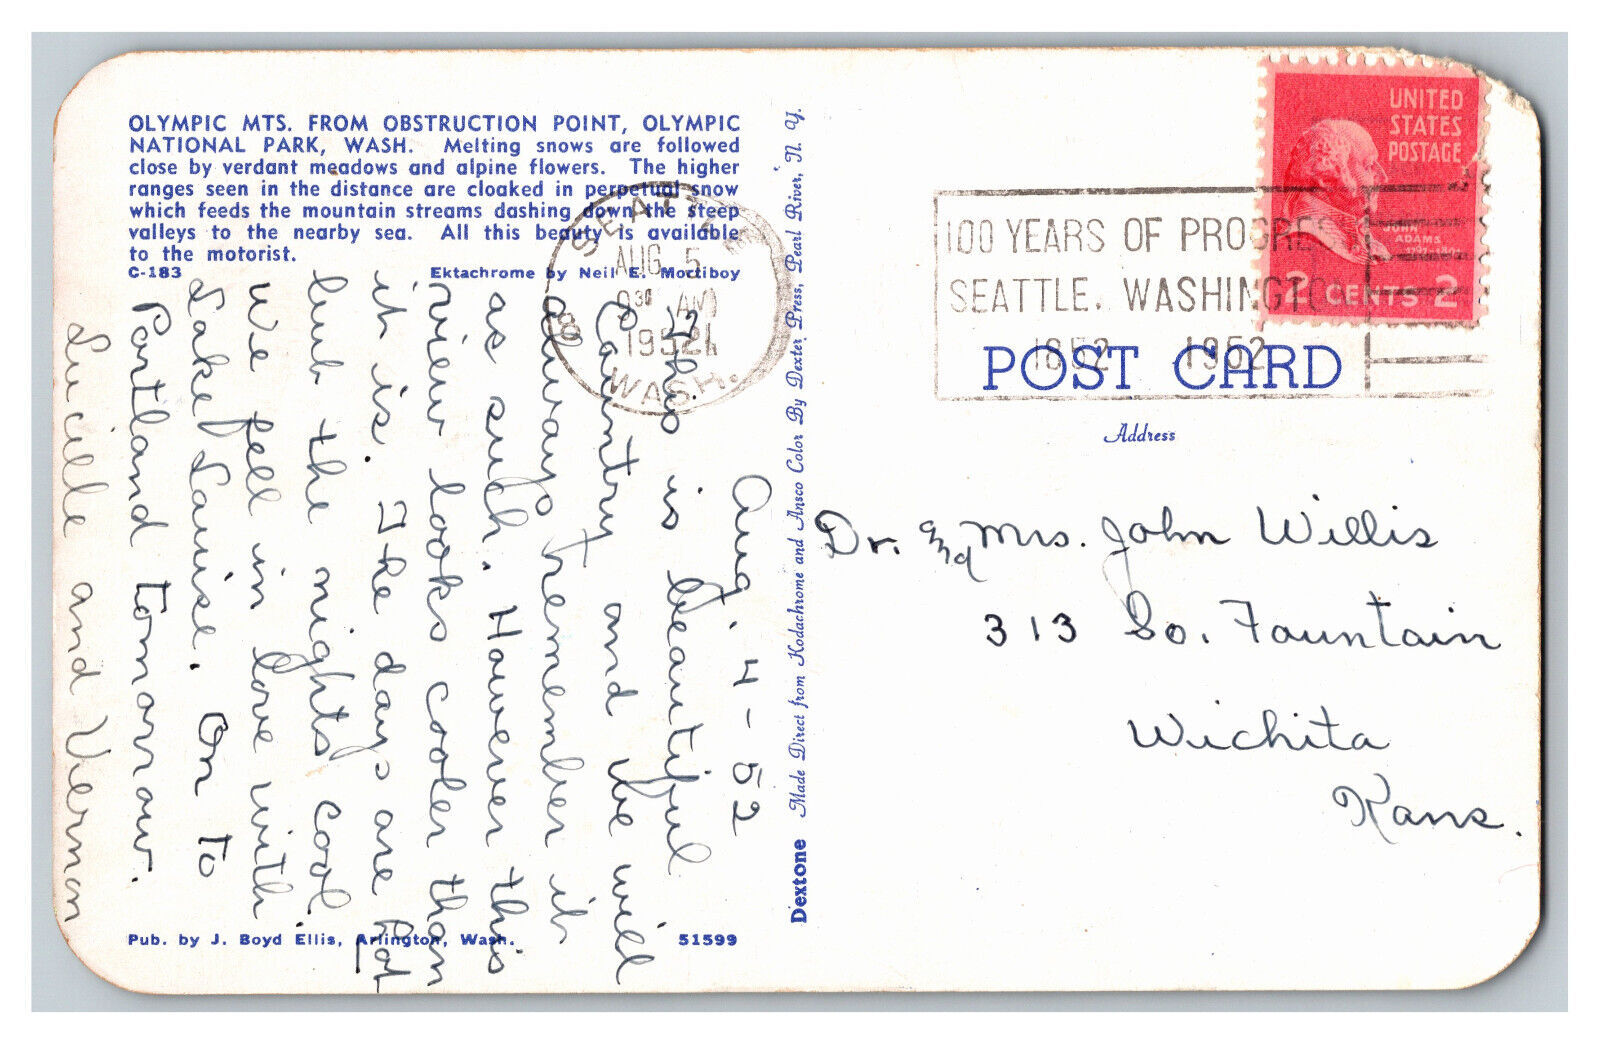 OLYMPIC MTS. FROM OBSTRUCTION POINT, OLYMPIC
NATIONAL PARK, WASH. Melting snows are followed
close by verdant meadows and alpine flowers. The higher
ranges seen in the distance are cloaked in perpetual snow
which feeds the mountain streams dashing down the steep
valleys to the nearby sea. All this beauty is available
to the motorist.
C-183 Ektachrome by Neil E. Mortiboy
Aug. 4-52
This is beautiful
Country and we will
always remember it
as such. However this
view looks cooler than
it is. The days are hot
but the nights cool.
We fell in love with
Lake Louise. On to
Portland tomorrow.
Lucille and Vierman
Pub. by J. Boyd Ellis, Arlington, Wash. 51599
Dextone Made Direct from Kodachrome and Ansco Color By Dexter Press, Pearl River, N. Y.
SEATTLE
AUG 5
9 30 AM
1952
WASH.
100 YEARS OF PROGRESS
SEATTLE, WASHINGTON
1852 1952
UNITED
STATES
POSTAGE
JOHN
ADAMS
1797-1801
2 CENTS 2
POST CARD
Address
Dr. and Mrs. John Willis
313 So. Fountain
Wichita
Kans.